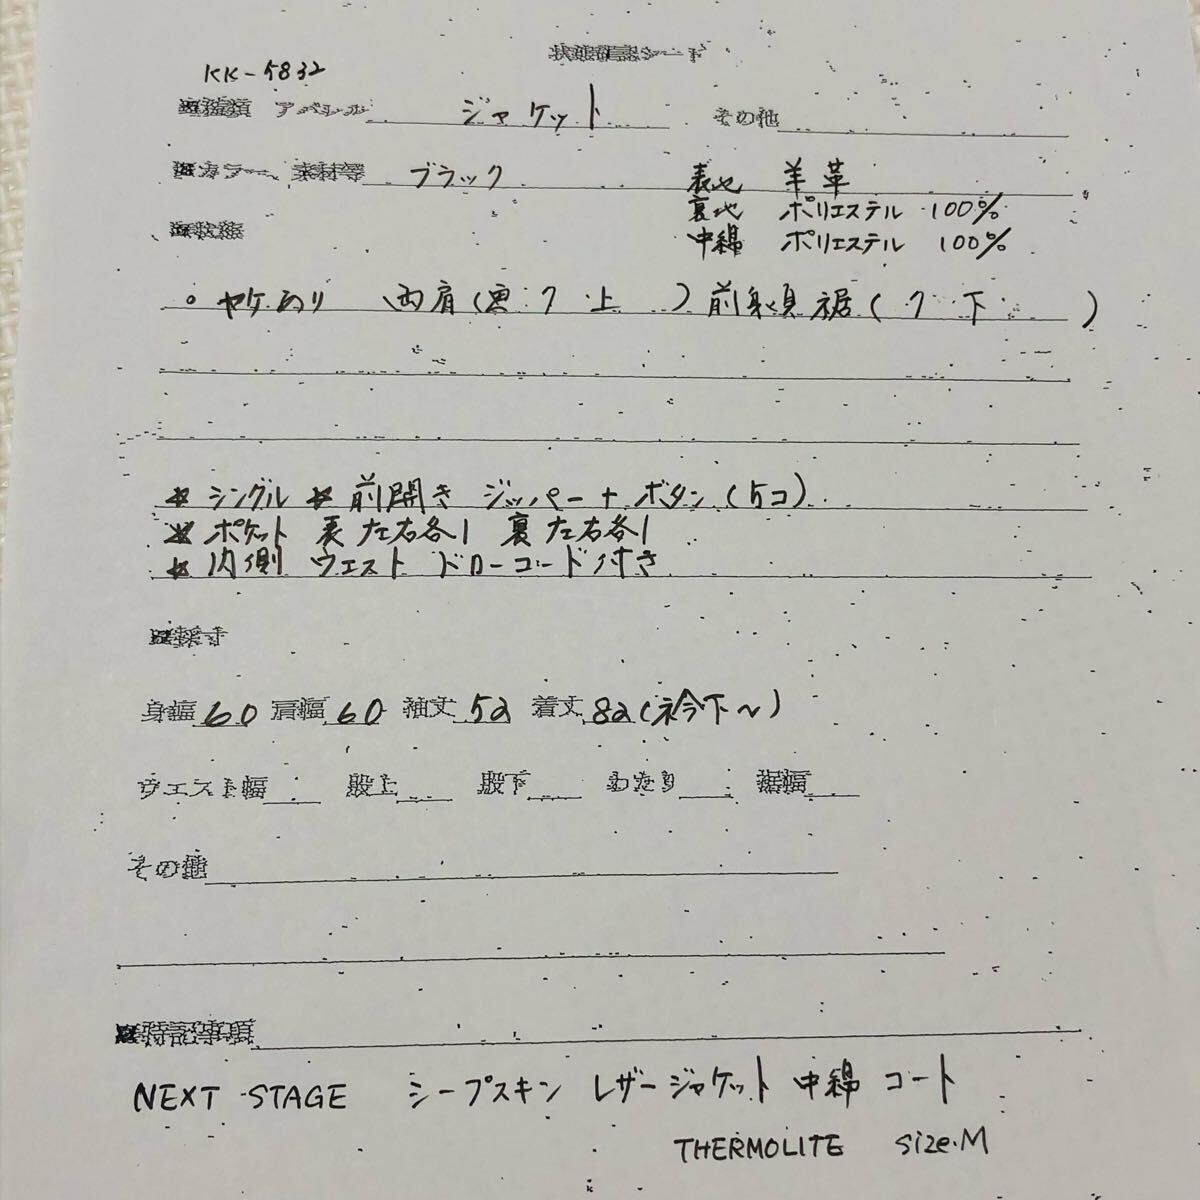 状態確認シート
KK-5832
■種類 アパレル ジャケット その他
■カラー、素材等 ブラック 表地 羊革
裏地 ポリエステル 100%
■状態 中綿 ポリエステル 100%
○ ヤケあり 両肩( ク 上 ) 前身頃 裾( ク 下 )
★ シングル ★ 前開き ジッパー+ボタン(5コ)
★ ポケット 表 左右各1 裏 左右各1
★ 内側 ウエスト ドローコード付き
■採寸
身幅 60 肩幅 60 袖丈 52 着丈 82(衿下~)
ウエスト幅 股上 股下 わたり 裾幅
その他
■特記事項
NEXT STAGE シープスキン レザージャケット 中綿 コート
THERMOLITE size.M